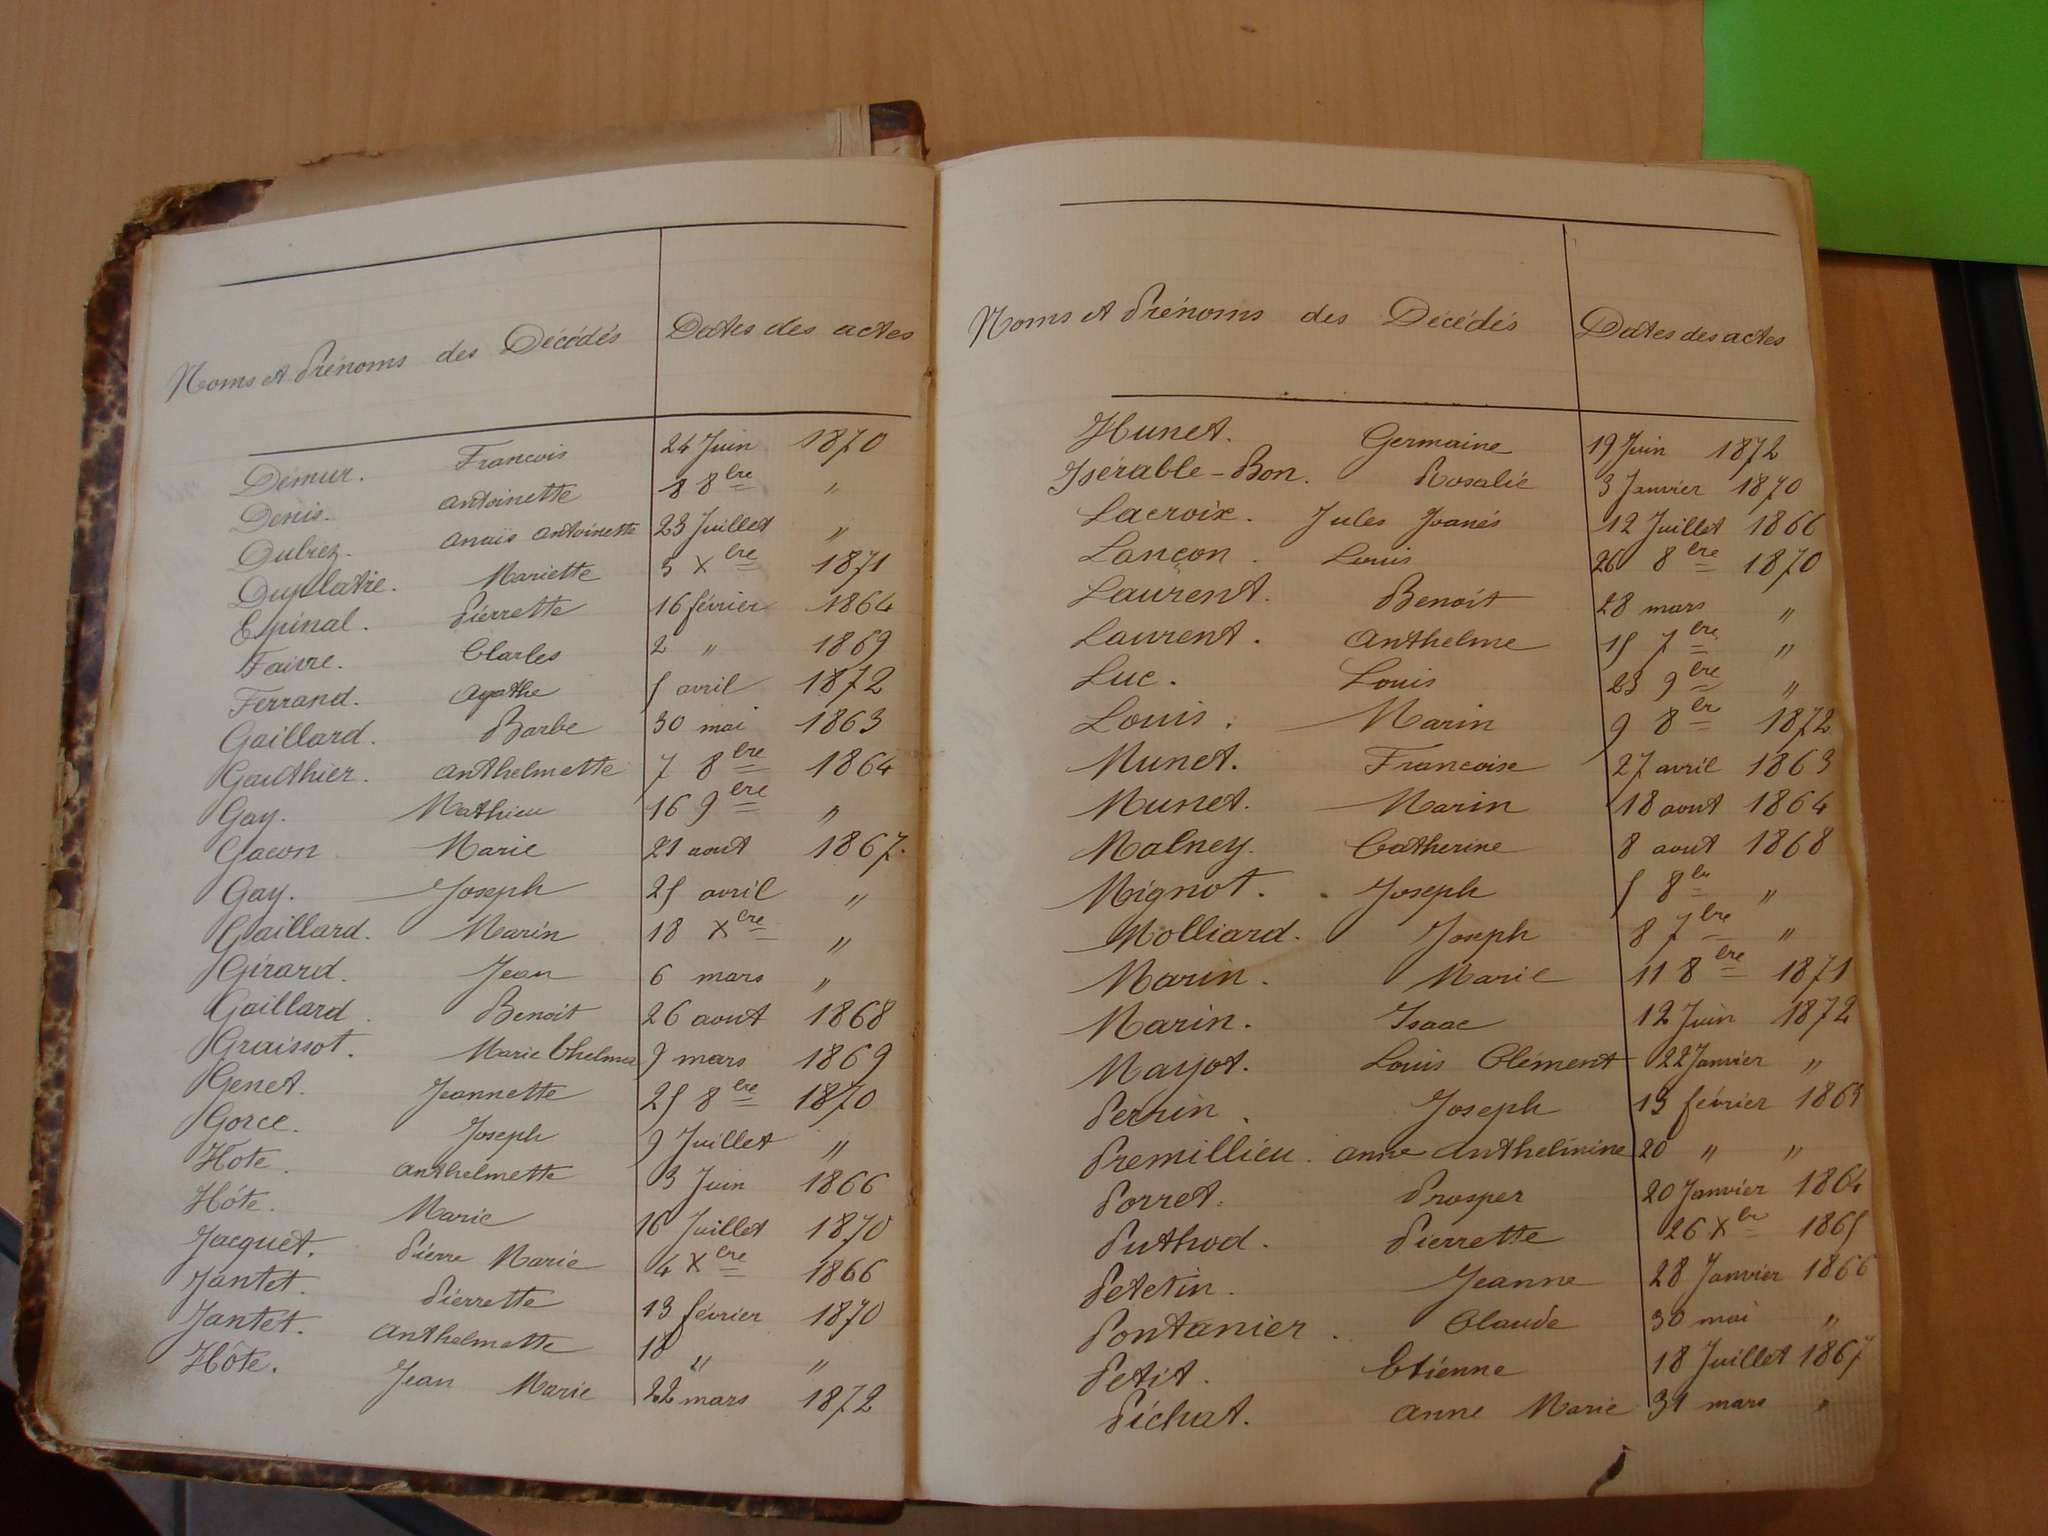 Noms et Prénoms des Décédés Dates des actes
Démur. Francois 24 Juin 1870
Denis. Antoinette 8 8bre "
Dubrez. Anaïs Antoinette 23 Juillet "
Duplatre. Mariette 5 Xbre 1871
Espinal. Pierrette 16 février 1864
Faivre. Charles 2 " 1869
Ferrand. Agathe 5 avril 1872
Gaillard. Barbe 30 mai 1863
Gauthier. Anthelmette 7 8bre 1864
Gay. Mathieu 16 9bre "
Gacon Marie 21 aout 1867.
Gay. Joseph 25 avril "
Gaillard. Marin 18 Xbre "
Girard. Jean 6 mars "
Gaillard. Benoit 26 aout 1868
Graissot. Marie 9 mars 1869
Genet. Jeannette 25 8bre 1870
Gorce. Joseph 9 Juillet "
Hote. Anthelmette 3 Juin 1866
Hôte. Marie 16 Juillet 1870
Jacquet. Pierre Marie 4 Xbre 1866
Jantet. Pierrette 13 février 1870
Jantet. Anthelmette 18 " "
Hôte. Jean Marie 22 mars 1872
Noms et Prénoms des Décédés Dates des actes
Hunet. Germaine 19 Juin 1872
Isérable-Bon. Rosalie 3 Janvier 1870
Lacroix. Jules Joanés 12 Juillet 1866
Lançon. Louis 26 8bre 1870
Laurent. Benoit 28 mars "
Laurent. Anthelme 15 7bre "
Luc. Louis 23 9bre "
Louis. Marin 9 8br 1872
Munet. Francoise 27 avril 1863
Munet. Marin 18 aout 1864
Malney. Catherine 8 aout 1868
Mignot. Joseph 5 8br "
Molliard. Joseph 8 7bre "
Marin. Marie 11 8bre 1871
Marin. Isaac 12 Juin 1872
Mayot. Louis Clément 22 Janvier "
Perrin. Joseph 13 février 1863
Premillieu. Anne 20 " "
Porret. Prosper 20 Janvier 1864
Puthod. Pierrette 26 Xbr 1865
Petetin. Jeanne 28 Janvier 1866
Pontanier. Claude 30 mai "
Petit. Etienne 18 Juillet 1867
Pichat. Anne Marie 31 mars "